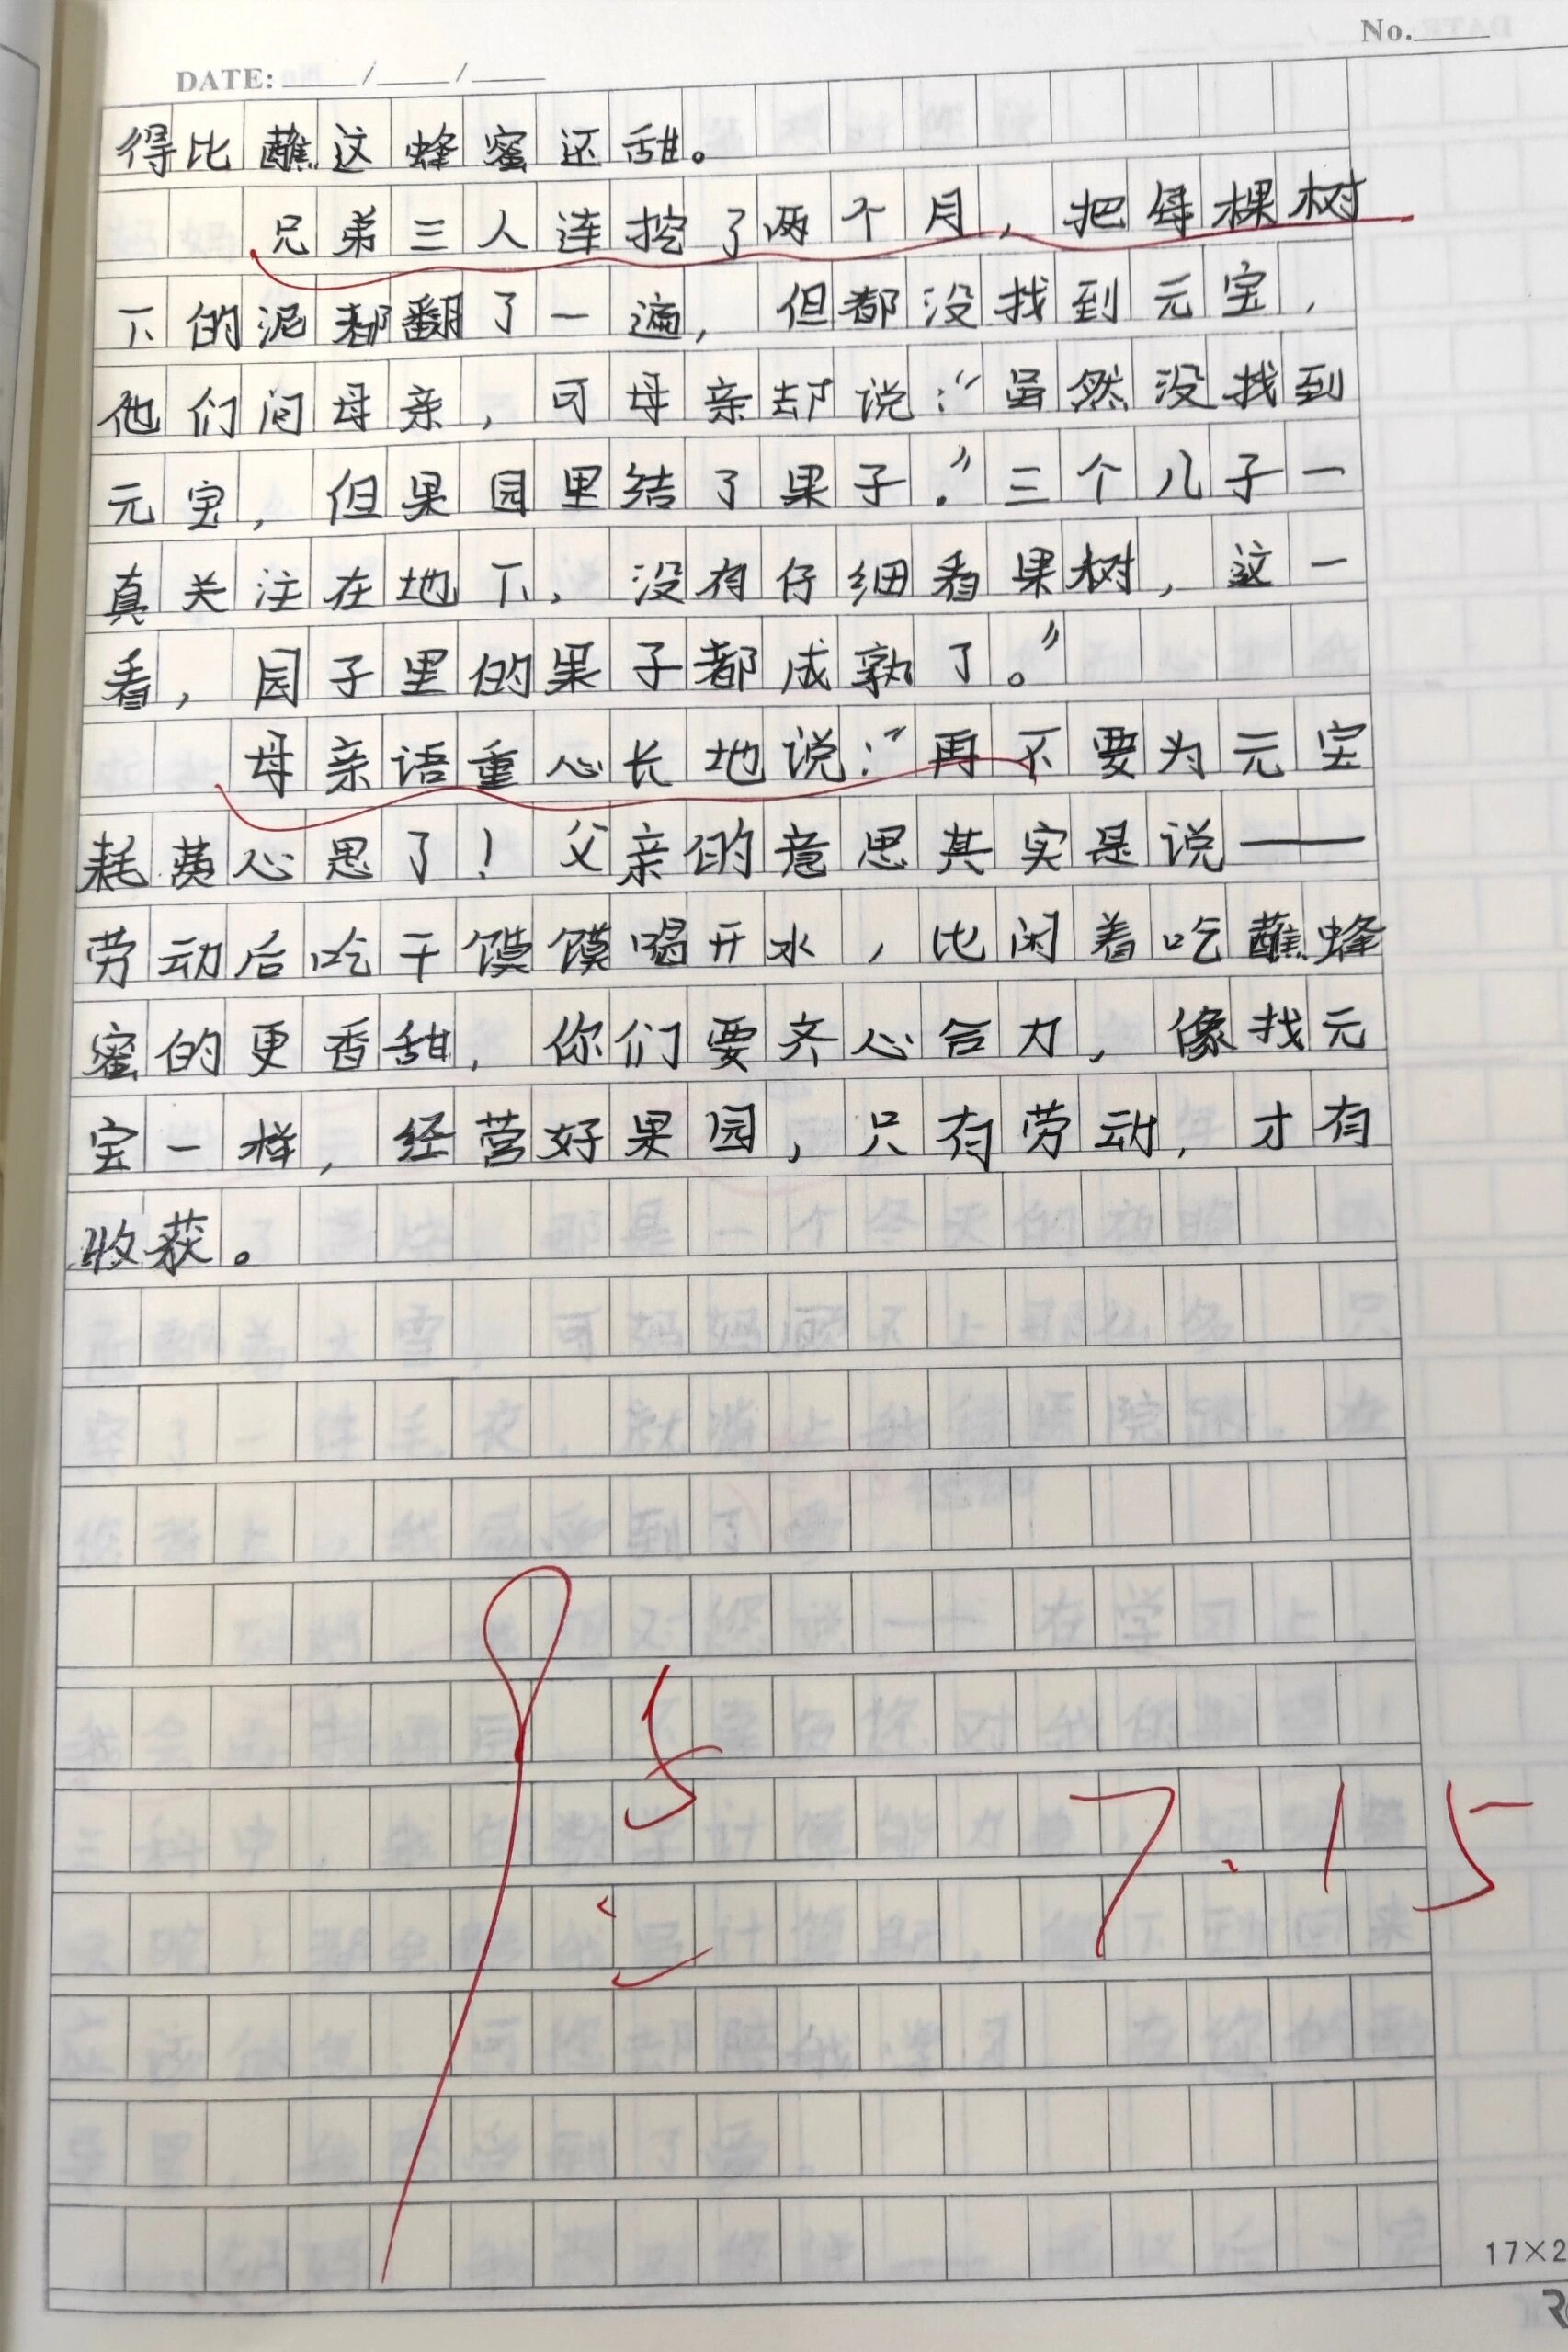 No.
DATE: / /
得比蘸这蜂蜜还甜。
兄弟三人连挖了两个月，把每棵树
下的泥都翻了一遍，但都没找到元宝，
他们问母亲，可母亲却说：“虽然没找到
元宝，但果园里结了果子。”三个儿子一
真关注在地下，没有仔细看果树，这一
看，园子里的果子都成熟了。”
母亲语重心长地说：“再不要为元宝
耗费心思了！父亲的意思其实是说——
劳动后吃干馍馍喝开水，比闲着吃蘸蜂
蜜的更香甜，你们要齐心合力，像找元
宝一样，经营好果园，只有劳动，才有
收获。
95
7.15
17×2